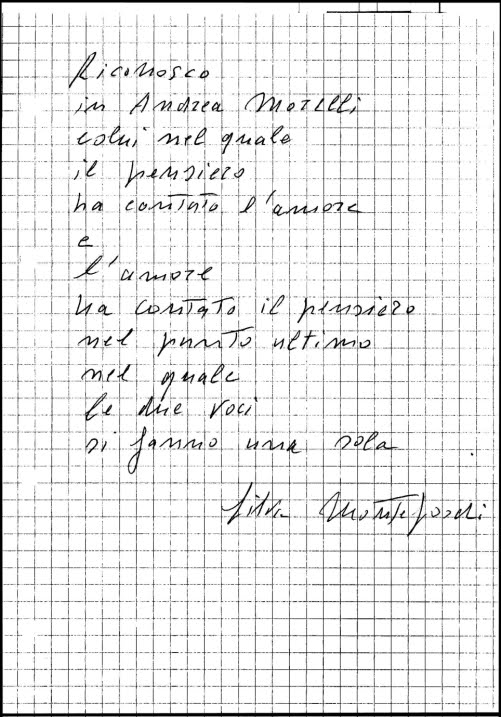 Riconosco
in Andrea Morelli
colui nel quale
il pensiero
ha contato l'amore
e
l'amore
ha contato il pensiero
nel punto ultimo
nel quale
le due voci
si fanno una sola
Silvia Montefoschi